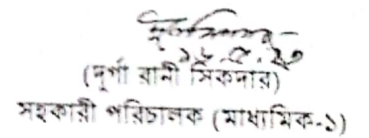 ১৮.৫.২৩
(দূর্গা রানী সিকদার)
সহকারী পরিচালক (মাধ্যমিক-১)